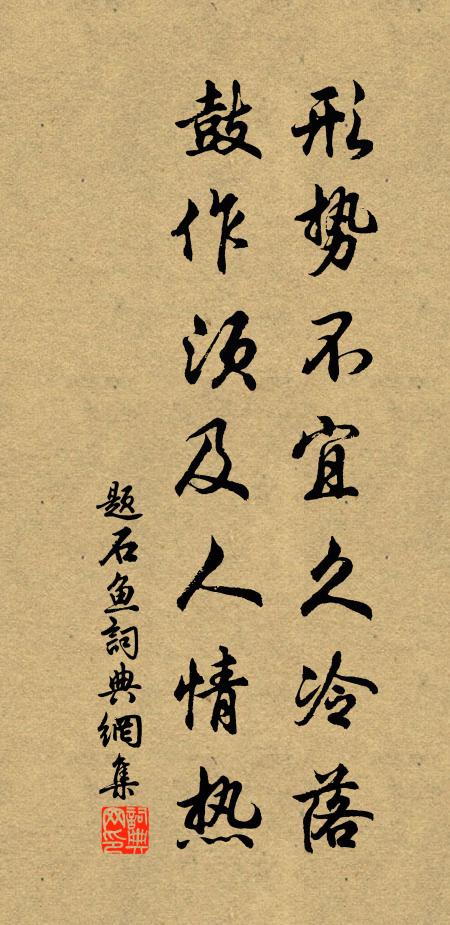 形势不宜久冷落
鼓作须及人情热
题石鱼詞典網集
詞典网印